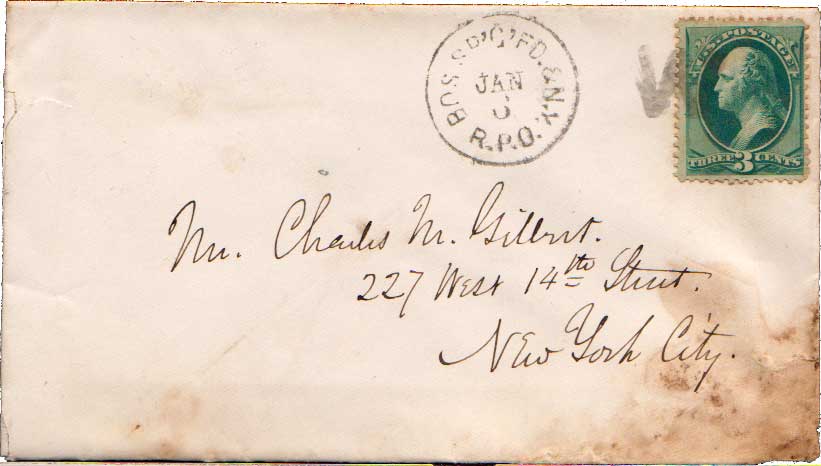 BOS. SP'G'FD. & N.Y.
JAN
R.P.O.
U.S. POSTAGE
THREE 3 CENTS
Mr. Charles M. Gilbert.
227 West 14th Street.
New York City.